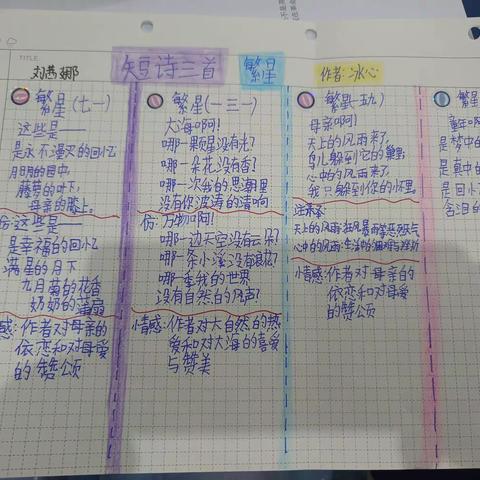 TITLE
刘茜娜
短诗三首
繁星
作者:冰心
繁星(七一)
这些是——
是永不漫灭的回忆
月明的园中
藤萝的叶下,
母亲的膝上。
仿:这些是——
是幸福的回忆
满星的月下
九月菊的花香
奶奶的蒲扇
感:作者对母亲的
依恋和对母爱
的赞颂
繁星(一三一)
大海啊!
哪一颗星没有光?
哪一朵花没有香?
哪一次我的思潮里
没有你波涛的清响
仿:万物啊!
哪一边天空没有云朵?
哪一条小溪没有浪花?
哪一季我的世界
没有自然的风声?
情感:作者对大自然的热
爱和对大海的喜爱
与赞美
繁星一五九
母亲啊!
天上的风雨来了,
鸟儿躲到它的巢里
心中的风雨来了,
我只躲到你的怀里
天上的风雨:狂风暴雨等恶劣天气
心中的风雨:生活中的困难与挫折
情感:作者对母亲的
依恋和对母爱
的赞颂
繁星
童年啊
是梦中的
是真中的
是回忆
含泪的